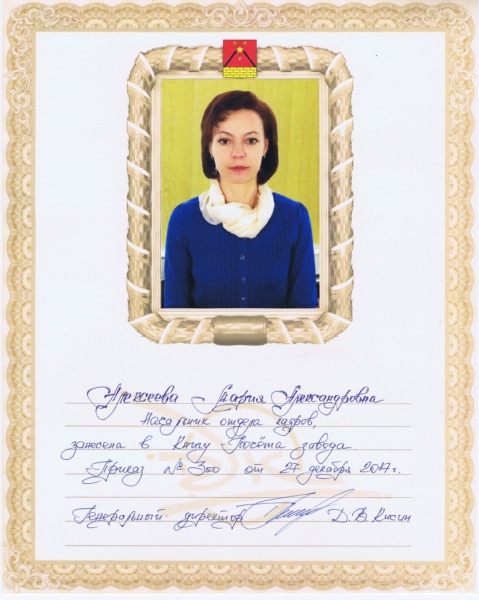 Алексеева Мария Александровна
Начальник отдела кадров,
занесена в Книгу Почёта завода.
Приказ № 3ко от 27 декабря 2017 г.
Генеральный директор Д.В. Кисин